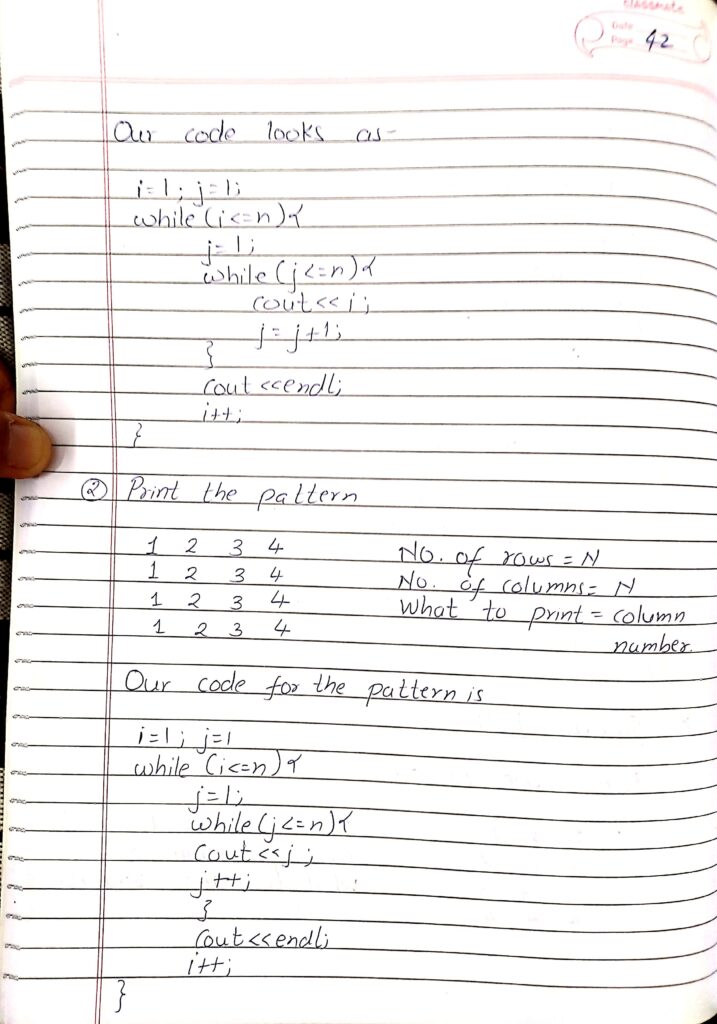 classmate
Date
Page 42
Our code looks as-
i=1; j=1;
while (i<=n){
j=1;
while (j<=n){
cout<<i;
j = j+1;
}
cout<<endl;
i++;
}
② Print the pattern
1 2 3 4 No. of rows = N
1 2 3 4 No. of columns= N
1 2 3 4 What to print = column
1 2 3 4 number.
Our code for the pattern is
i=1; j=1
while (i<=n){
j=1;
while (j<=n){
cout<<j;
j++;
}
cout<<endl;
i++;
}